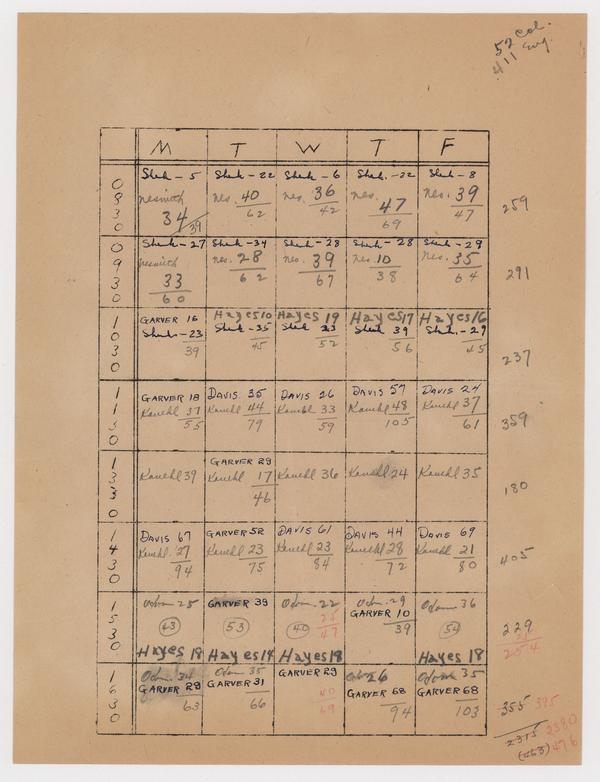 52 Col.
411 Eng.
M T W T F
0830
Shek - 5 Shek - 22 Shek - 6 Shek. - 22 Shek - 8
Nesmith Nes. 40 Nes. 36 Nes. 47 Nes. 39
34 39 62 42 69 47 259
0930
Shek - 27 Shek - 34 Shek - 28 Shek - 28 Shek - 29
Nesmith Nes. 28 Nes. 39 Nes. 10 Nes. 35
33 62 67 38 64 291
60
1030
GARVER 16 Hayes 10 Hayes 19 Hayes 17 Hayes 16
Shek - 23 Shek - 35 Shek 33 Shek 39 Shek. - 29
39 45 52 56 45 237
1130
GARVER 18 DAVIS 35 DAVIS 26 DAVIS 57 DAVIS 24
Kauchl 37 Kauchl 44 Kauchl 33 Kauchl 48 Kauchl 37
55 79 59 105 61 359
1330
GARVER 29
Kauchl 39 Kauchl 17 Kauchl 36 Kauchl 24 Kauchl 35
46 180
1430
DAVIS 67 GARVER 52 DAVIS 61 DAVIS 44 DAVIS 69
Kauchl 27 Kauchl 23 Kauchl 23 Kauchl 28 Kauchl 21
94 75 84 72 80 405
1530
Odom 25 GARVER 39 Odom. 22 Odom. 29 Odom 36
GARVER 10
43 53 40 25 39 54 229
47 25
254
Hayes 18 Hayes 14 Hayes 18 Hayes 18
1630
Odom. 34 Odom. 35 GARVER 29 26 Odom 35
GARVER 29 GARVER 31 GARVER 68 GARVER 68
63 66 40 94 103 355 395
69
2315 2380
(463) 476